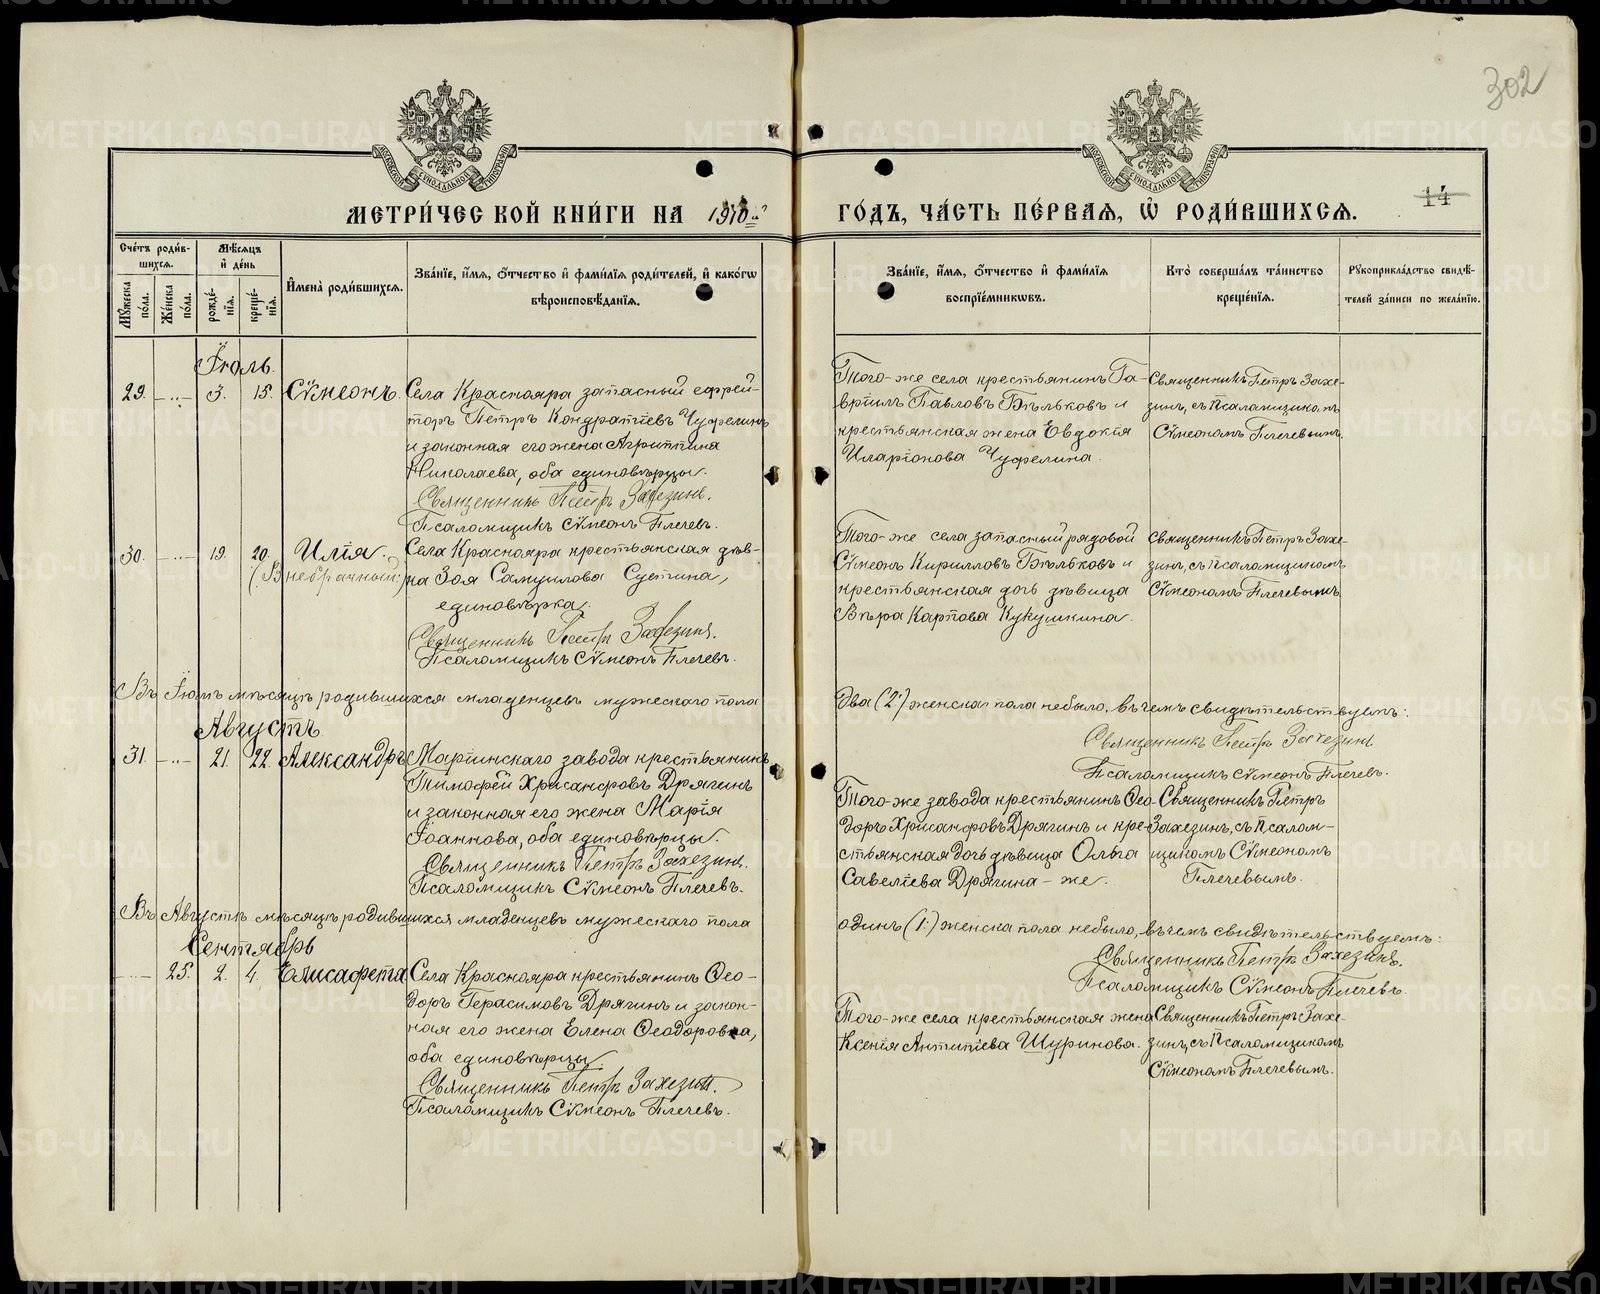 302
МОСКОВСКОЙ СѴНОДАЛЬНОЙ ТИПОГРАФІИ
МОСКОВСКОЙ СѴНОДАЛЬНОЙ ТИПОГРАФІИ
14
МЕТРИ́ЧЕС КОЙ КНИ́ГИ НА 1910й
ГО́ДЪ, ЧА́СТЬ ПЕ́РВАЯ, Ѽ РОДИ́ВШИХСЯ.
Сче́тъ роди́в-
шихся.
Мꙋ́жеска по́ла.
Же́нска по́ла.
Мѣ́сяцъ
и҆ де́нь
рожде́-
нїя.
креще́-
нїя.
И҆мена̀ роди́вшихся.
Зва́нїе, и҆́мя, ѻ҆́тчество и҆ фами́лїя роди́телей, и҆ како́гѡ
вѣроисповѣ́данїя.
Зва́нїе, и҆́мя, ѻ҆́тчество и҆ фами́лїя
воспрїе́мникѡвъ.
Кто̀ соверша́лъ та́инство
креще́нїя.
Рꙋкоприкла́дство свидѣ́-
телей за́писи по жела́нїю.
Іюль.
29. 3. 15. Сѵмеонъ.
Села Краснояра запасный ефрей-
торъ Петръ Кондратіевъ Чуфелинъ
и законная его жена Агриппина
Николаева, оба единовѣрцы.
Священникъ Петръ Захезинъ.
Псаломщикъ Сѵмеонъ Плечевъ.
Того-же села крестьянинъ Га-
вріилъ Павловъ Бѣльковъ и
крестьянская жена Евдокія
Иларіонова Чуфелина.
Священникъ Петръ Захе-
зинъ, съ Псаломщикомъ
Сѵмеономъ Плечевымъ.
30. 19. 20. Илія.
(Внебрачный)
Села Краснояра крестьянская дѣв-
ка Зоя Самуилова Сутина,
единовѣрка.
Священникъ Петръ Захезинъ.
Псаломщикъ Сѵмеонъ Плечевъ.
Того-же села запасный рядовой
Сѵмеонъ Кирилловъ Бѣльковъ и
крестьянская дочь дѣвица
Вѣра Карпова Кукушкина.
Священникъ Петръ Захе-
зинъ, съ Псаломщикомъ
Сѵмеономъ Плечевымъ.
Въ Іюлѣ мѣсяцѣ родившихся младенцев мужескаго пола
два (2) женска пола небыло, въ чемъ свидѣтельствуемъ:
Священникъ Петръ Захезинъ
Псаломщикъ Сѵмеонъ Плечевъ.
Августъ
31. 21. 22. Александръ
Маріинскаго завода крестьянинъ
Тимофей Хрисанфовъ Дрягинъ
и законная его жена Марія
Іоаннова, оба единовѣрцы.
Священникъ Петръ Захезинъ.
Псаломщикъ Сѵмеонъ Плечевъ.
Того-же завода крестьянинъ Ѳео-
доръ Хрисанфовъ Дрягинъ и кре-
стьянская дочь дѣвица Ольга
Савеліева Дрягина-же.
Священникъ Петръ
Захезинъ, съ Псалом-
щикомъ Сѵмеономъ
Плечевымъ.
Въ Августѣ мѣсяцѣ родившихся младенцев мужескаго пола
одинъ (1) женска пола небыло, въ чемъ свидѣтельствуемъ:
Священникъ Петръ Захезинъ.
Псаломщикъ Сѵмеонъ Плечевъ.
Сентябрь
25. 2. 4. Елисафета
Села Краснояра крестьянинъ Ѳео-
доръ Герасимовъ Дрягинъ и закон-
ная его жена Елена Ѳеодоровна,
оба единовѣрцы.
Священникъ Петръ Захезинъ.
Псаломщикъ Сѵмеонъ Плечевъ.
Того-же села крестьянская жена
Ксенія Антипіева Шуринова.
Священникъ Петръ Захе-
зинъ, съ Псаломщикомъ
Сѵмеономъ Плечевымъ.
METRIKI.GASO-URAL.RU